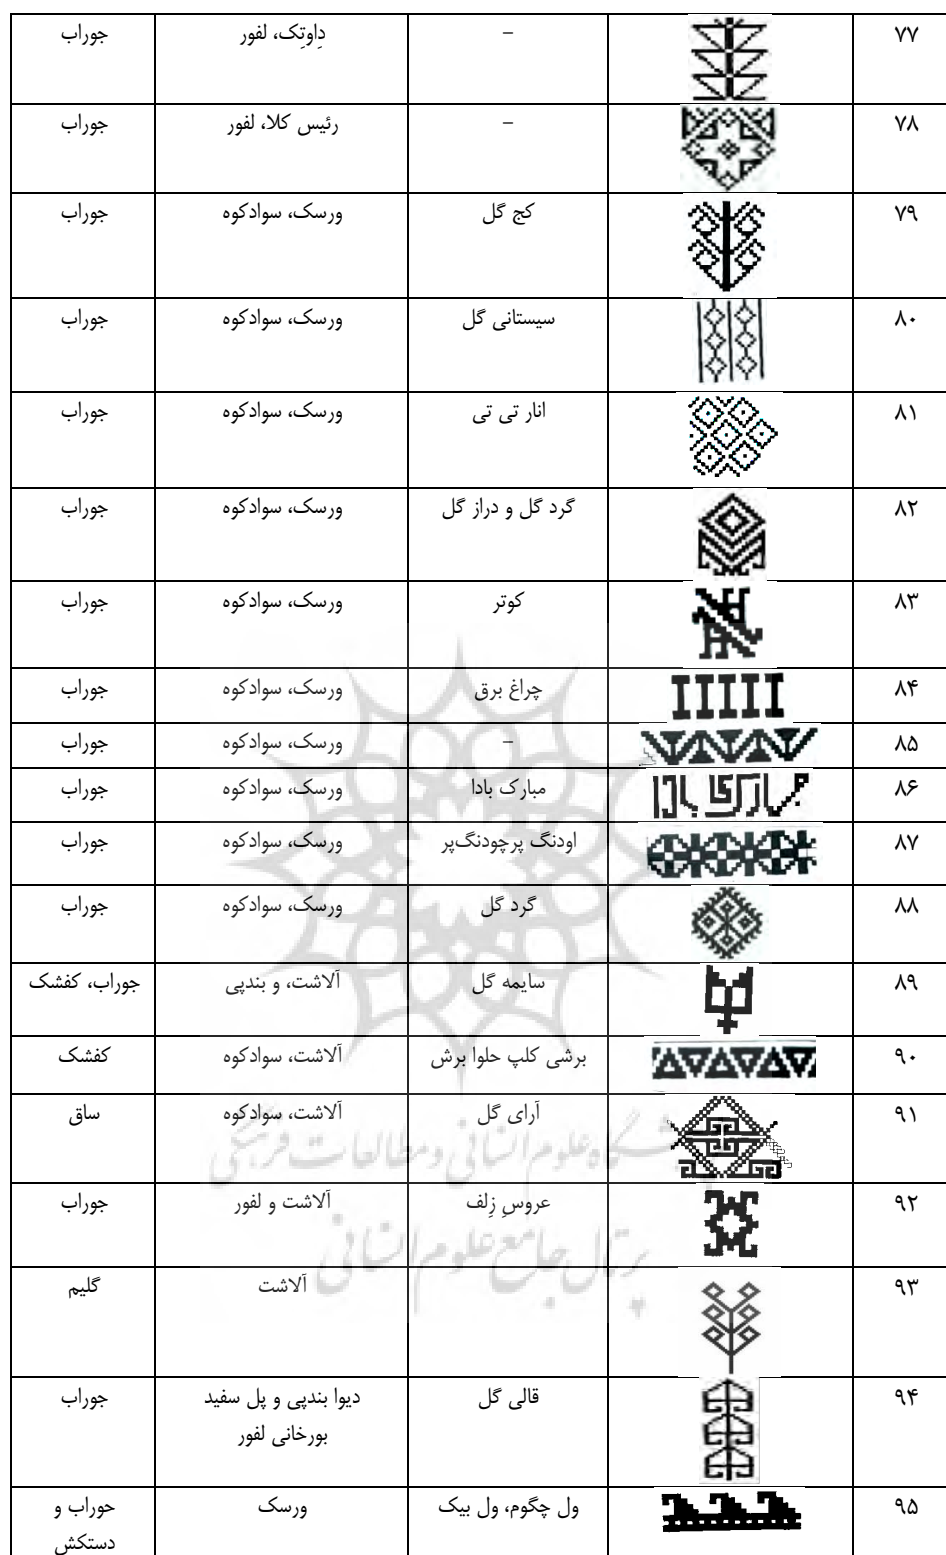 ۷۷ – دِاوتِک، لفور جوراب
۷۸ – رئیس کلا، لفور جوراب
۷۹ کج گل ورسک، سوادکوه جوراب
۸۰ سیستانی گل ورسک، سوادکوه جوراب
۸۱ انار تی تی ورسک، سوادکوه جوراب
۸۲ گرد گل و دراز گل ورسک، سوادکوه جوراب
۸۳ کوتر ورسک، سوادکوه جوراب
۸۴ چراغ برق ورسک، سوادکوه جوراب
۸۵ – ورسک، سوادکوه جوراب
۸۶ مبارک بادا مبارک بادا ورسک، سوادکوه جوراب
۸۷ اودنگ پرچودنگ‌پر ورسک، سوادکوه جوراب
۸۸ گرد گل ورسک، سوادکوه جوراب
۸۹ سایمه گل آلاشت، و بندپی جوراب، کفشک
۹۰ برشی کلپ حلوا برش آلاشت، سوادکوه کفشک
۹۱ آرای گل آلاشت، سوادکوه ساق
۹۲ عروسِ زِلف آلاشت و لفور جوراب
۹۳ آلاشت گلیم
۹۴ قالی گل دیوا بندپی و پل سفید جوراب
بورخانی لفور
۹۵ ول چگوم، ول بیک ورسک حوراب و
دستکش
پژوهشگاه علوم انسانی و مطالعات فرهنگی
پرتال جامع علوم انسانی